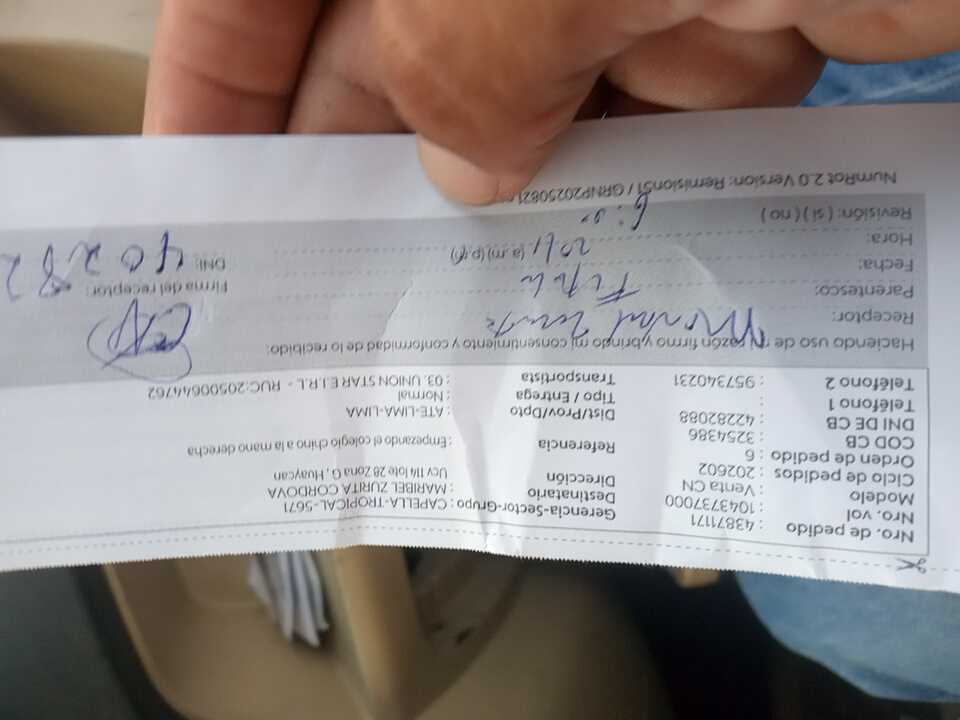 Nro. de pedido : 43871171
Nro. vol : 1043737000
Modelo : Venta CN
Ciclo de pedidos : 202602
Orden de pedido : 6
COD CB : 3254386
DNI DE CB : 42282088
Teléfono 1 :
Teléfono 2 : 957340231
Gerencia-Sector-Grupo : CAPELLA-TROPICAL-5671
Destinatario : MARIBEL ZURITA CORDOVA
Dirección Ucv 114 lote 28 Zona G , Huaycan
Referencia : Empezando el colegio chino a la mano derecha
Dist/Prov/Dpto : ATE-LIMA-LIMA
Tipo / Entrega : Normal
Transportista : 03. UNION STAR E.I.R.L. - RUC:20500644762
Haciendo uso de mi razón firmo y brindo mi consentimiento y conformidad de lo recibido:
Receptor:
Parentesco:
Fecha:
Hora: (a.m) (p.m)
Revisión: ( si ) ( no )
Firma del receptor:
DNI: 40282
NumRot 2.0 Version: Remision51 / GRNP20250821